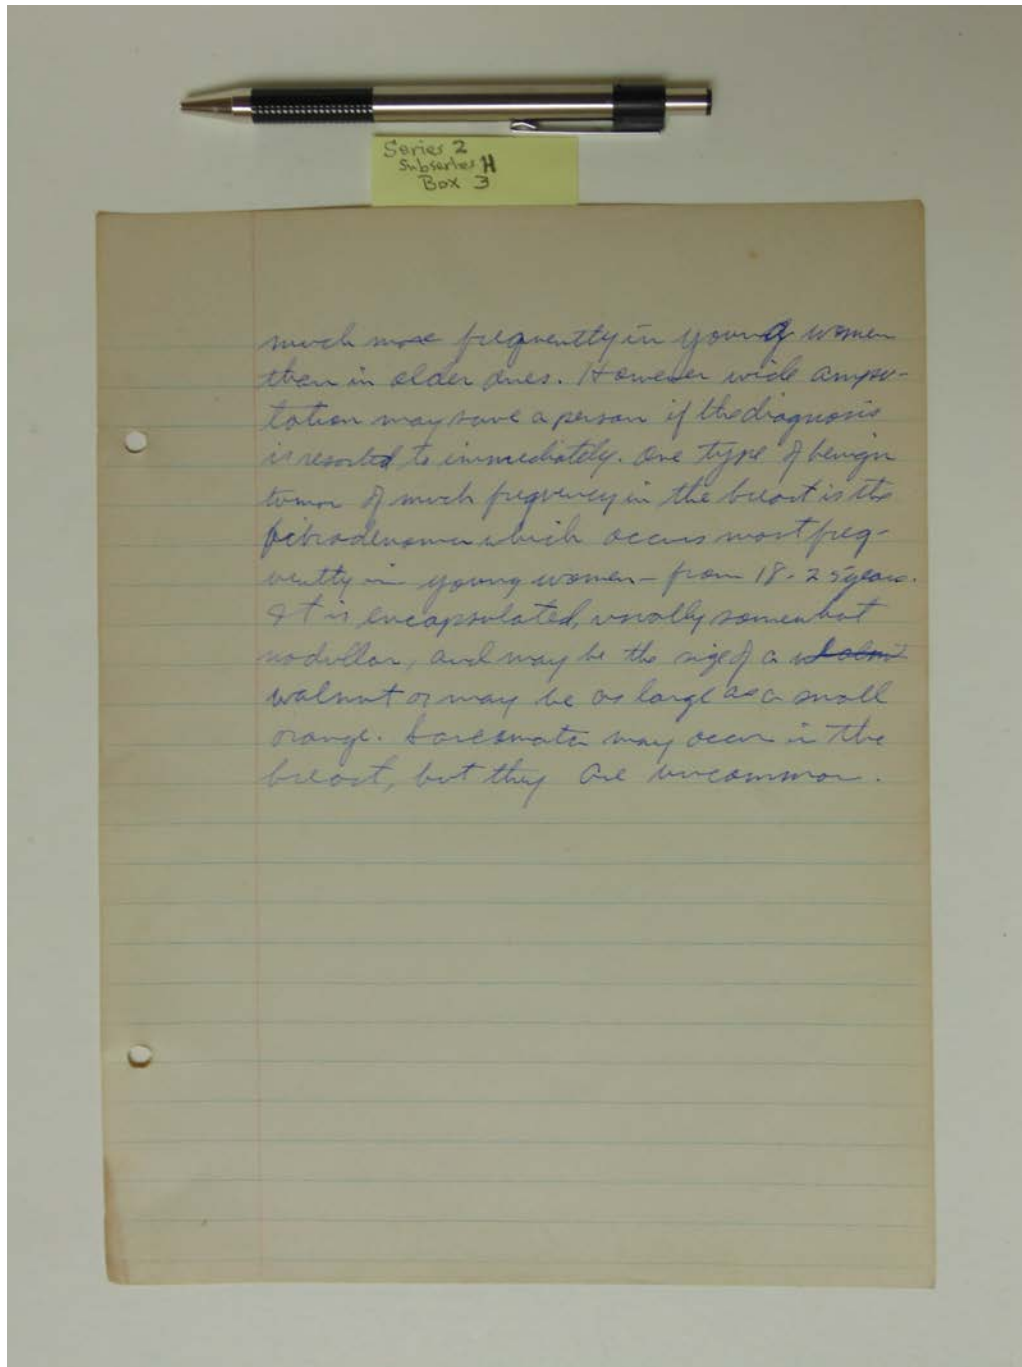 Series 2
Subseries H
Box 3
much more frequently in young women
than in older ones. However wide ampu-
tation may save a person if the diagnosis
is resorted to immediately. One type of benign
tumor of much frequency in the breast is the
fibroadenoma which occurs most freq-
uently in young women - from 18-25 years.
It is encapsulated, usually somewhat
nodullar, and may be the size of a
walnut or may be as large as a small
orange. Sarcomata may occur in the
breast, but they are uncommon.